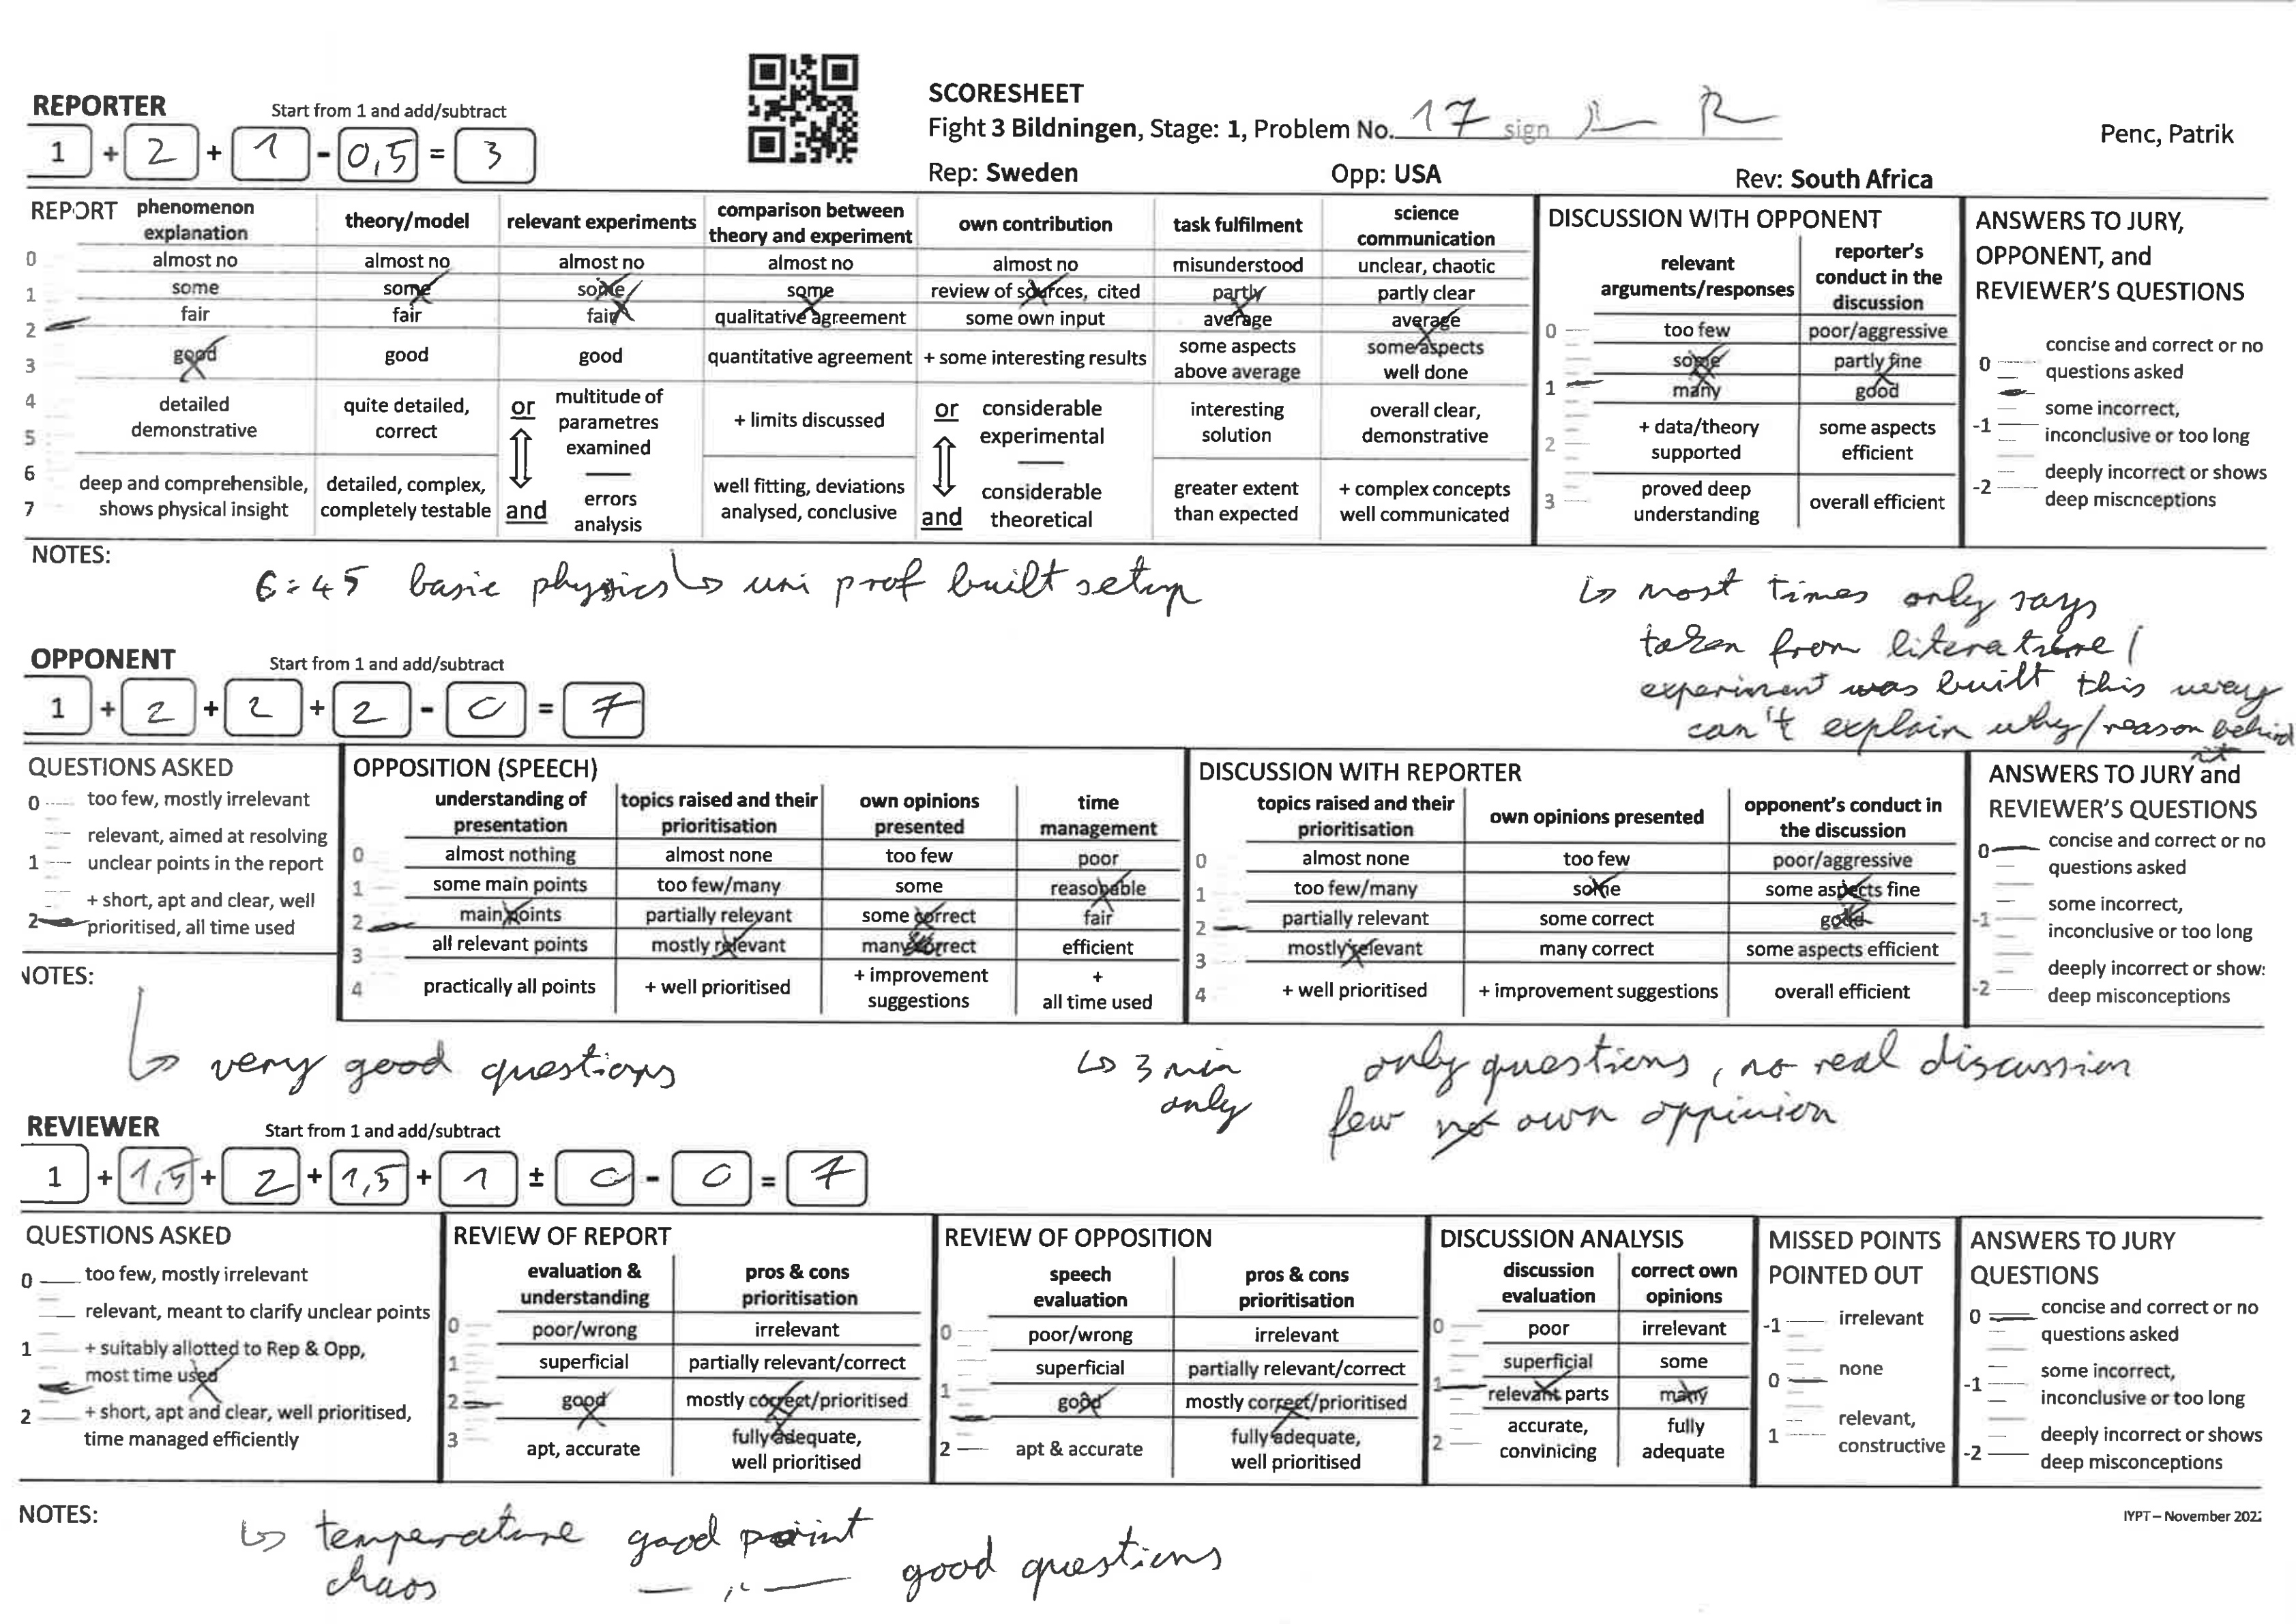 SCORESHEET
Fight 3 Bildningen, Stage: 1, Problem No. 17 sign
Penc, Patrik
Rep: Sweden Opp: USA Rev: South Africa
REPORTER Start from 1 and add/subtract
1 + 2 + 1 - 0,5 = 3
REPORT
phenomenon explanation
almost no
some
fair
good
detailed demonstrative
deep and comprehensible, shows physical insight
theory/model
almost no
some
fair
good
quite detailed, correct
detailed, complex, completely testable
relevant experiments
almost no
some
fair
good
or
multitude of parametres examined
and
errors analysis
comparison between theory and experiment
almost no
some
qualitative agreement
quantitative agreement
+ limits discussed
well fitting, deviations analysed, conclusive
own contribution
almost no
review of sources, cited
some own input
+ some interesting results
or
considerable experimental
and
considerable theoretical
task fulfilment
misunderstood
partly
average
some aspects above average
interesting solution
greater extent than expected
science communication
unclear, chaotic
partly clear
average
some aspects well done
overall clear, demonstrative
+ complex concepts well communicated
0
1
2
3
4
5
6
7
DISCUSSION WITH OPPONENT
relevant arguments/responses
too few
some
many
+ data/theory supported
proved deep understanding
reporter's conduct in the discussion
poor/aggressive
partly fine
good
some aspects efficient
overall efficient
0
1
2
3
ANSWERS TO JURY, OPPONENT, and REVIEWER'S QUESTIONS
0 concise and correct or no questions asked
-1 some incorrect, inconclusive or too long
-2 deeply incorrect or shows deep miscnceptions
NOTES:
6:45 basic physics ↳ uni prof built setup
↳ most times only says
taken from literature /
experiment was built this way
can't explain why/reason behind
it
OPPONENT Start from 1 and add/subtract
1 + 2 + 2 + 2 - 0 = 7
QUESTIONS ASKED
0 too few, mostly irrelevant
relevant, aimed at resolving
1 unclear points in the report
+ short, apt and clear, well
2 prioritised, all time used
OPPOSITION (SPEECH)
understanding of presentation
almost nothing
some main points
main points
all relevant points
practically all points
topics raised and their prioritisation
almost none
too few/many
partially relevant
mostly relevant
+ well prioritised
own opinions presented
too few
some
some correct
many correct
+ improvement suggestions
time management
poor
reasonable
fair
efficient
+ all time used
0
1
2
3
4
DISCUSSION WITH REPORTER
topics raised and their prioritisation
almost none
too few/many
partially relevant
mostly relevant
+ well prioritised
own opinions presented
too few
some
some correct
many correct
+ improvement suggestions
opponent's conduct in the discussion
poor/aggressive
some aspects fine
good
some aspects efficient
overall efficient
0
1
2
3
4
ANSWERS TO JURY and REVIEWER'S QUESTIONS
0 concise and correct or no questions asked
-1 some incorrect, inconclusive or too long
-2 deeply incorrect or show: deep misconceptions
NOTES:
↳ very good questions
↳ 3 min
only
only questions, no real discussion
few own oppinion
REVIEWER Start from 1 and add/subtract
1 + 1,5 + 2 + 1,5 + 1 ± 0 - 0 = 7
QUESTIONS ASKED
0 too few, mostly irrelevant
relevant, meant to clarify unclear points
1 + suitably allotted to Rep & Opp,
most time used
2 + short, apt and clear, well prioritised,
time managed efficiently
REVIEW OF REPORT
evaluation & understanding
poor/wrong
superficial
good
apt, accurate
pros & cons prioritisation
irrelevant
partially relevant/correct
mostly correct/prioritised
fully adequate, well prioritised
0
1
2
3
REVIEW OF OPPOSITION
speech evaluation
poor/wrong
superficial
good
apt & accurate
pros & cons prioritisation
irrelevant
partially relevant/correct
mostly correct/prioritised
fully adequate, well prioritised
0
1
2
DISCUSSION ANALYSIS
discussion evaluation
poor
superficial
relevant parts
accurate, convinicing
correct own opinions
irrelevant
some
many
fully adequate
0
1
2
MISSED POINTS POINTED OUT
-1 irrelevant
0 none
1 relevant, constructive
ANSWERS TO JURY QUESTIONS
0 concise and correct or no questions asked
-1 some incorrect, inconclusive or too long
-2 deeply incorrect or shows deep misconceptions
NOTES:
↳ temperature good point
chaos — ,, — good questions
IYPT – November 202